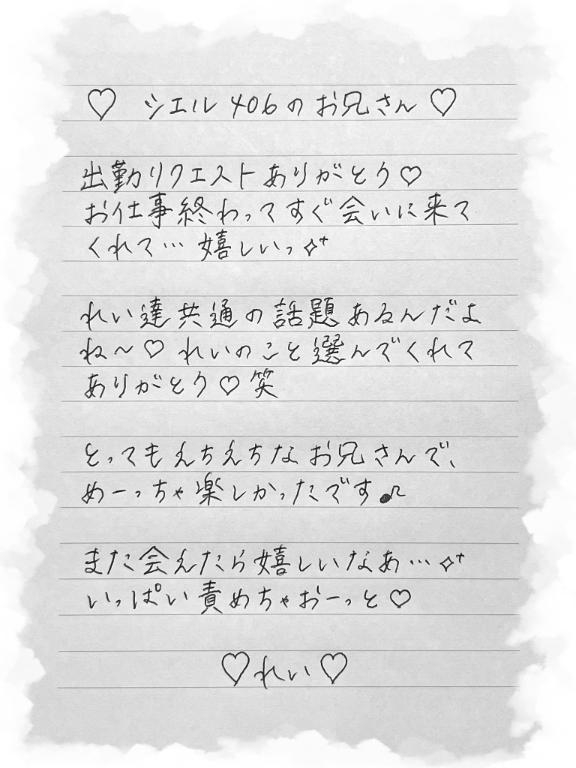 ♡ シエル406のお兄さん♡
出勤リクエストありがとう♡
お仕事終わってすぐ会いに来て
くれて…嬉しいっ✧⁺
れい達共通の話題あるんだよ
ね〜♡れいのこと選んでくれて
ありがとう♡笑
とってもえちえちなお兄さんで、
めーっちゃ楽しかったです♪
また会えたら嬉しいなあ…✧⁺
いっぱい責めちゃおーっと♡
♡れい♡